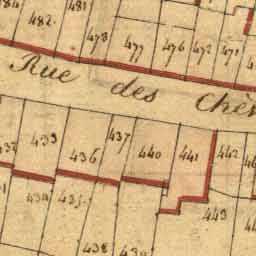 482
481
478
477
476
472
471
Rue des Chê
433
436
437
440
441
442
434
435
438
443